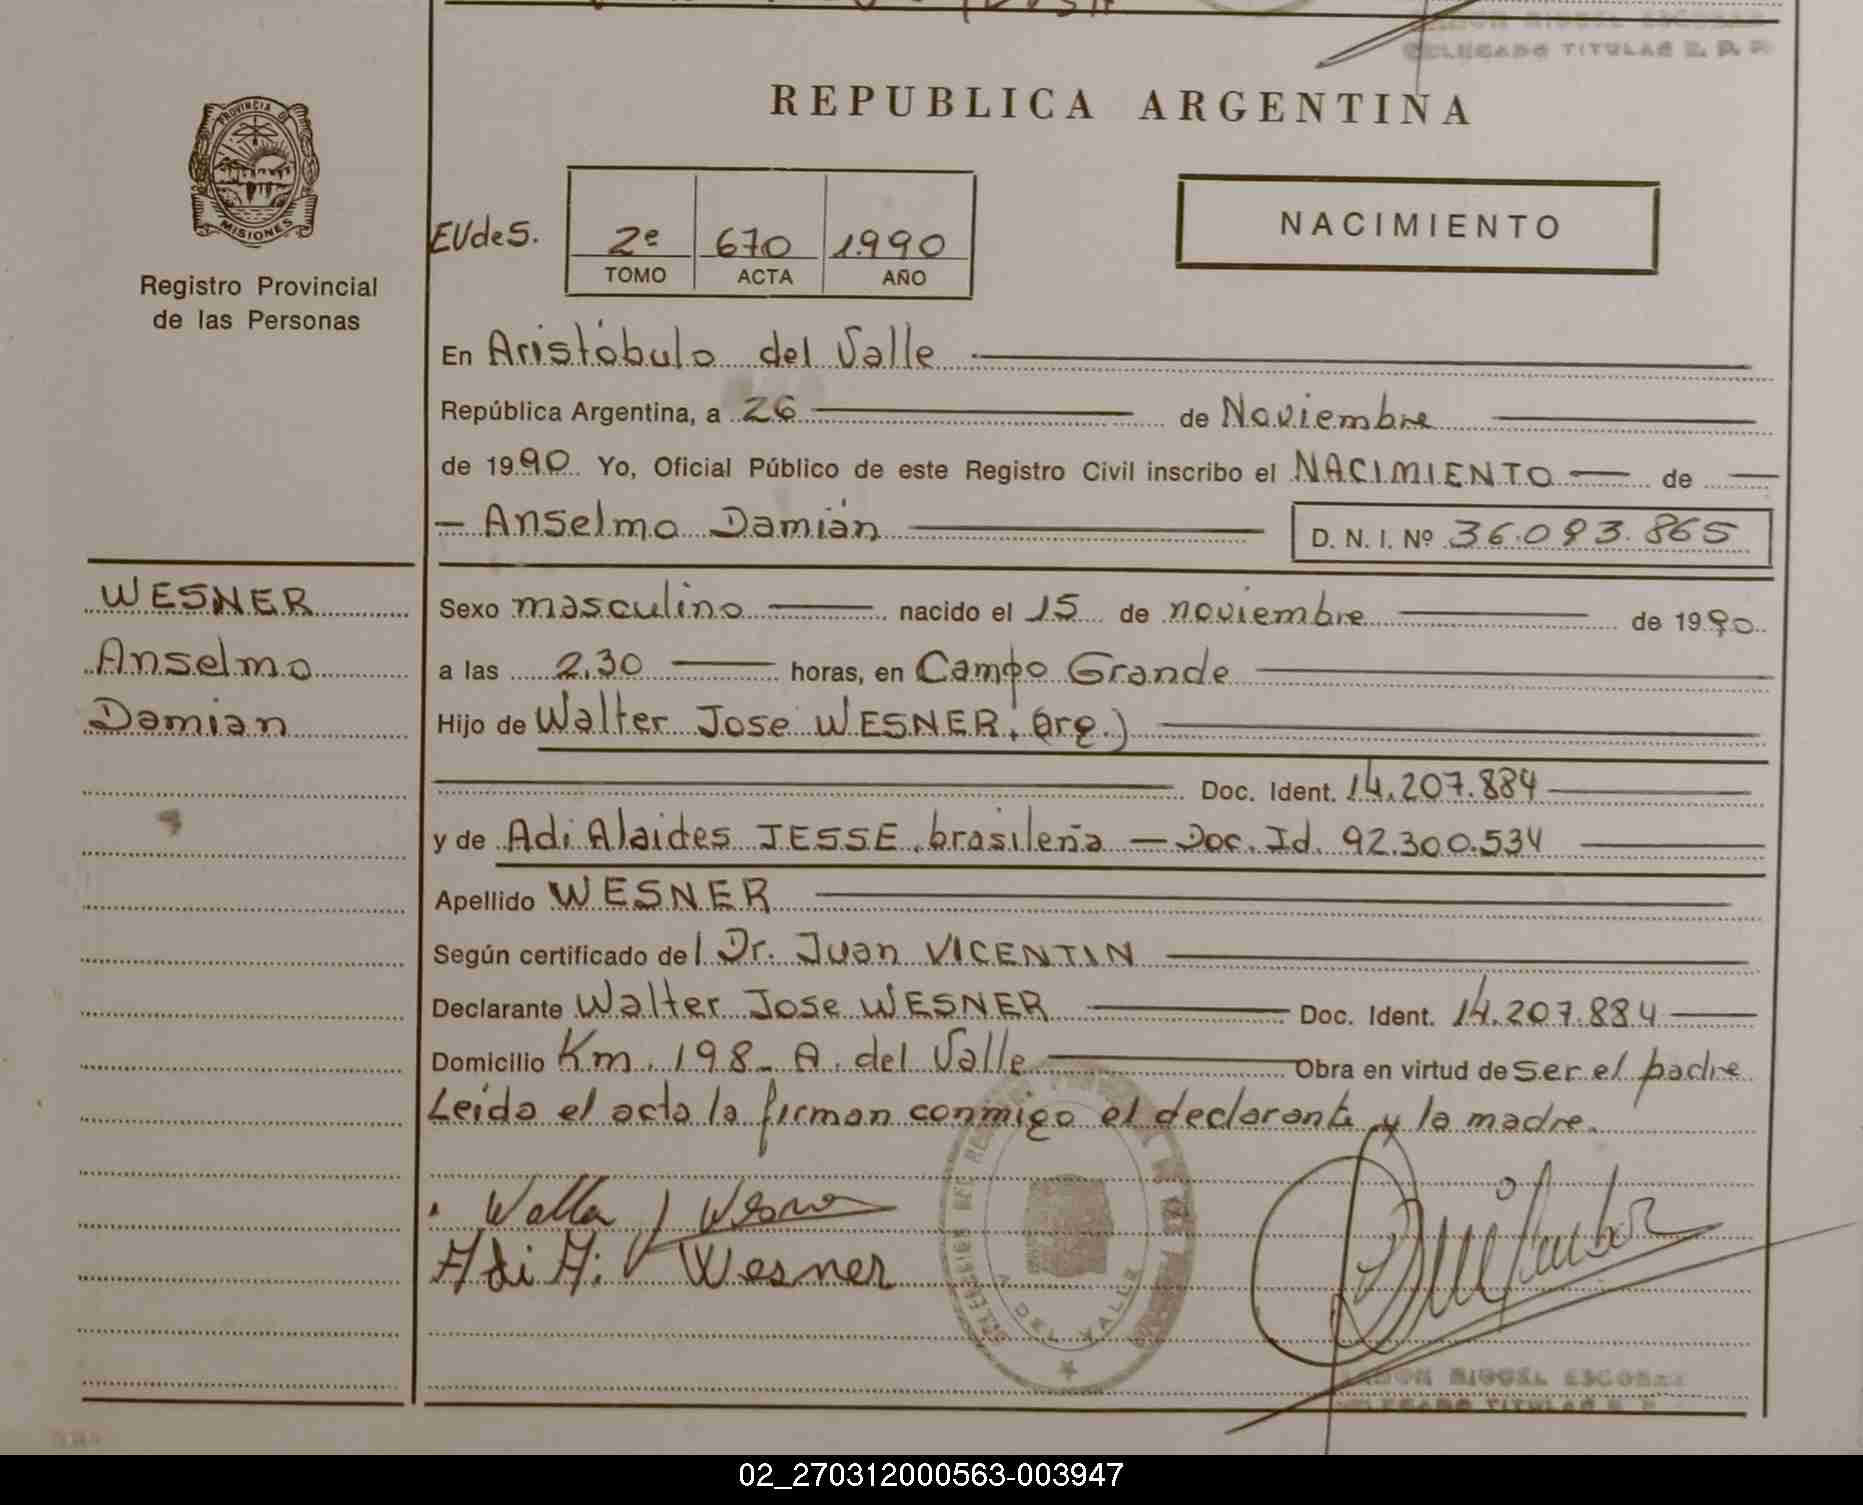 DELEGADO TITULAR R. P. P.
REPUBLICA ARGENTINA
PROVINCIA DE
MISIONES
Registro Provincial
de las Personas
EUdeS.
2e 670 1990
TOMO ACTA AÑO
NACIMIENTO
En Aristóbulo del Valle
República Argentina, a 26 de Noviembre
de 1990 Yo, Oficial Público de este Registro Civil inscribo el NACIMIENTO de
Anselmo Damián D. N. I. Nº 36.093.865
WESNER
Anselmo
Damian
Sexo masculino nacido el 15 de noviembre de 1990
a las 2,30 horas, en Campo Grande
Hijo de Walter Jose WESNER. (arg.)
Doc. Ident. 14.207.884
y de Adi Alaides JESSE. brasileña — Doc. Id. 92.300.534
Apellido WESNER
Según certificado del Dr. Juan VICENTIN
Declarante Walter Jose WESNER Doc. Ident. 14.207.884
Domicilio Km. 198 - A. del Valle Obra en virtud de ser el padre
Leida el acta la firman conmigo el declarante y la madre.
Adi A. Wesner
DEL VALLE
MIGUEL ESCOBAR
DELEGADO TITULAR
02_270312000563-003947